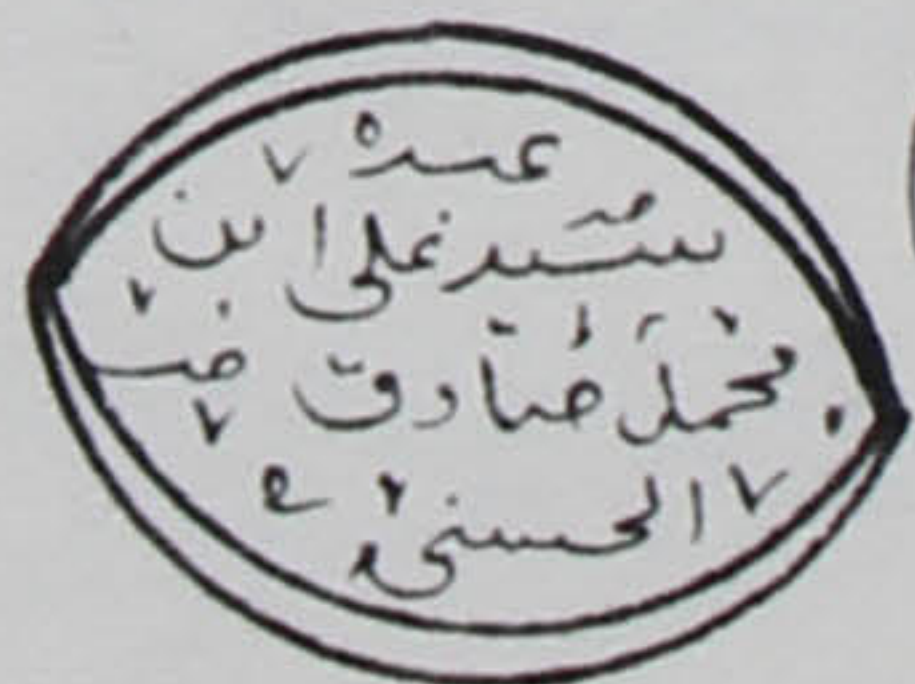 عبده
سید علی ابن
محمد صادق
الحسنی